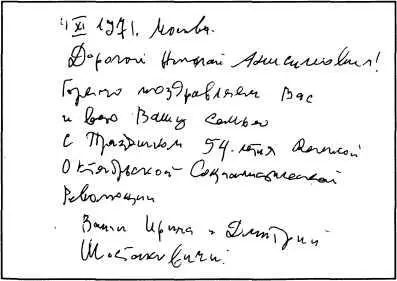 4 XI 1971. Москва.
Дорогой Николай Анисимович!
Горячо поздравляем Вас
и всю Вашу семью
с Праздником 54-летия Великой
Октябрьской Социалистической
Революции
Ваши Ирина и Дмитрий
Шостаковичи.